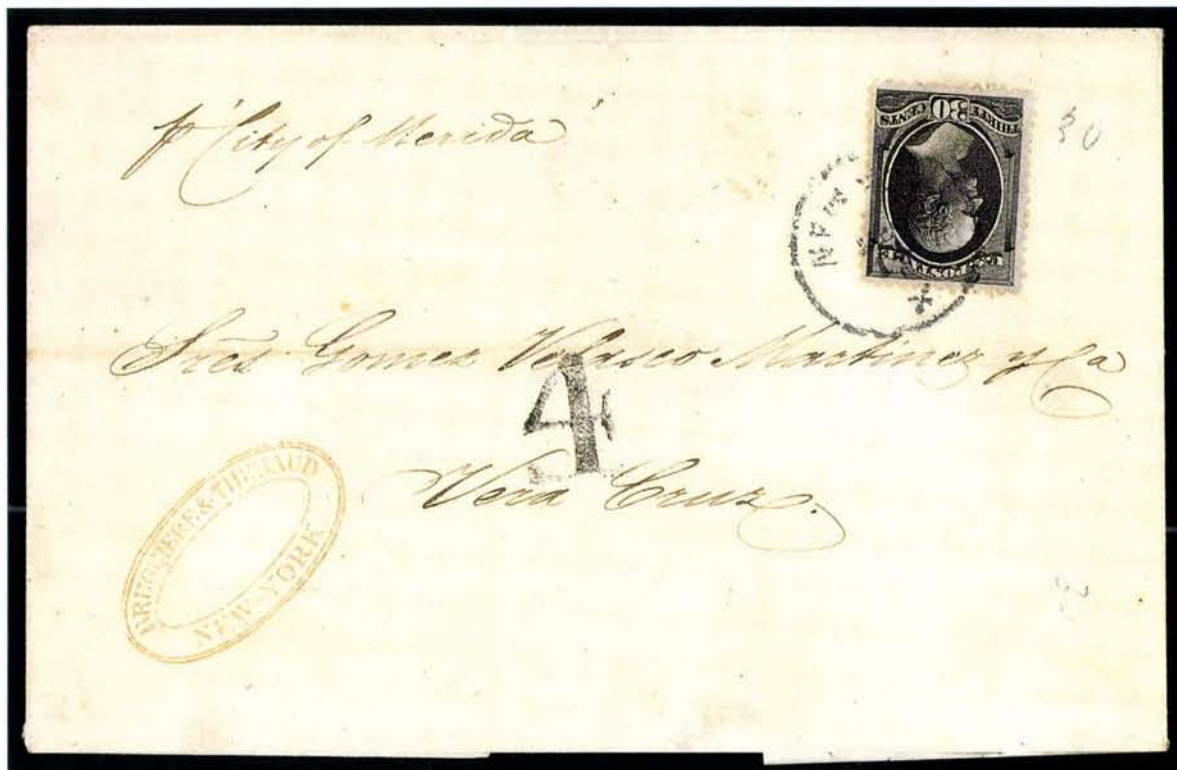 p "City of Merida"
30
THIRTY 30 CENTS
U.S. POSTAGE
NEW
Sres Gomez Velasco Martinez y Ca
4
Vera Cruz.
BRUGUIERE & THEBAUD
NEW-YORK